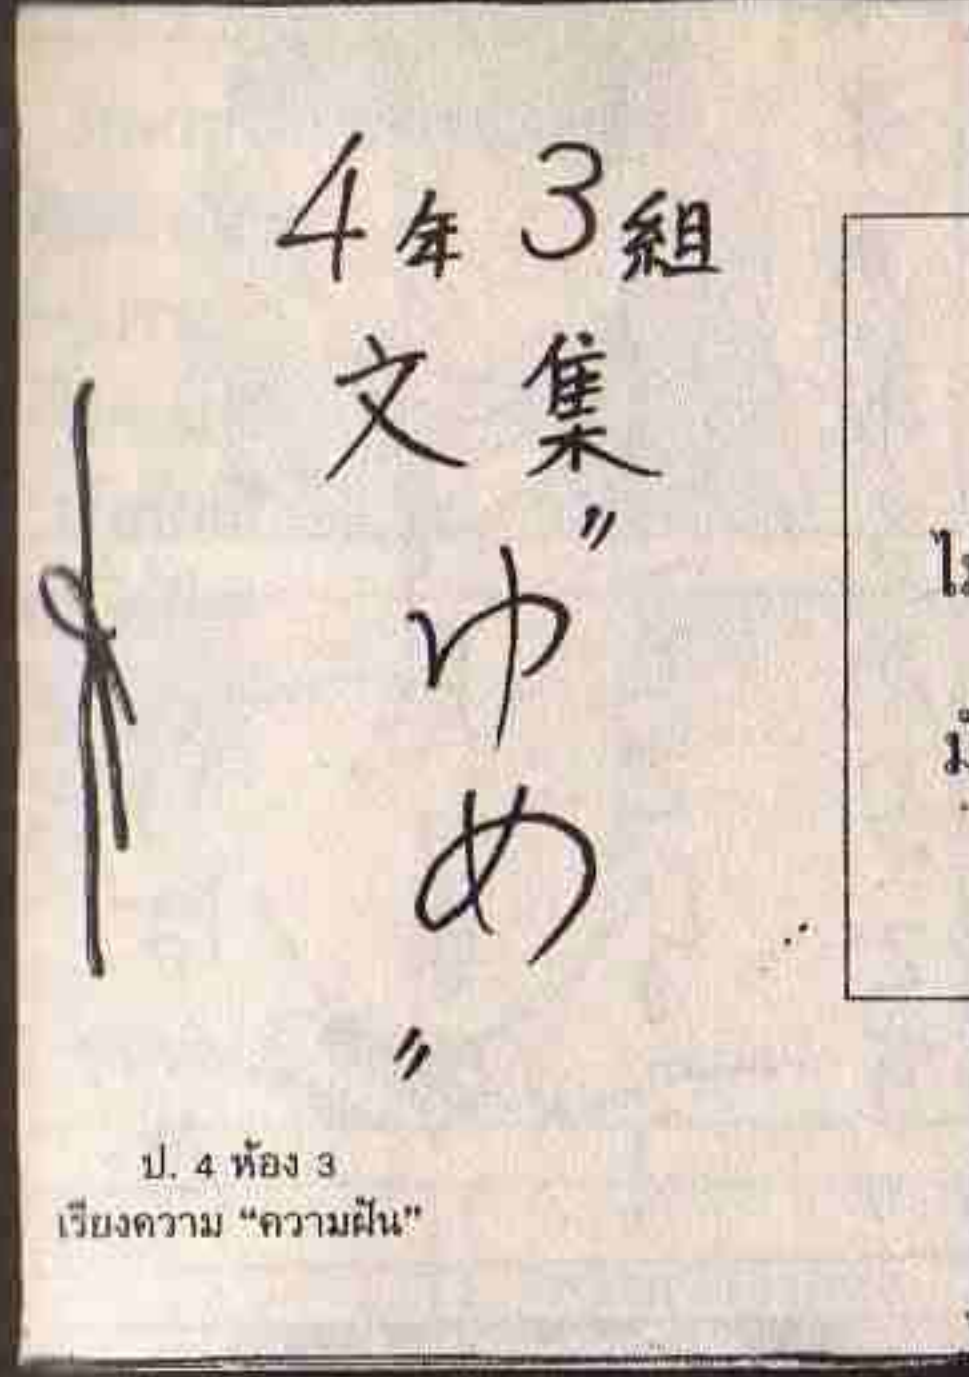 4年3組
文集
"ゆめ"
ป. 4 ห้อง 3
เรียงความ “ความฝัน”